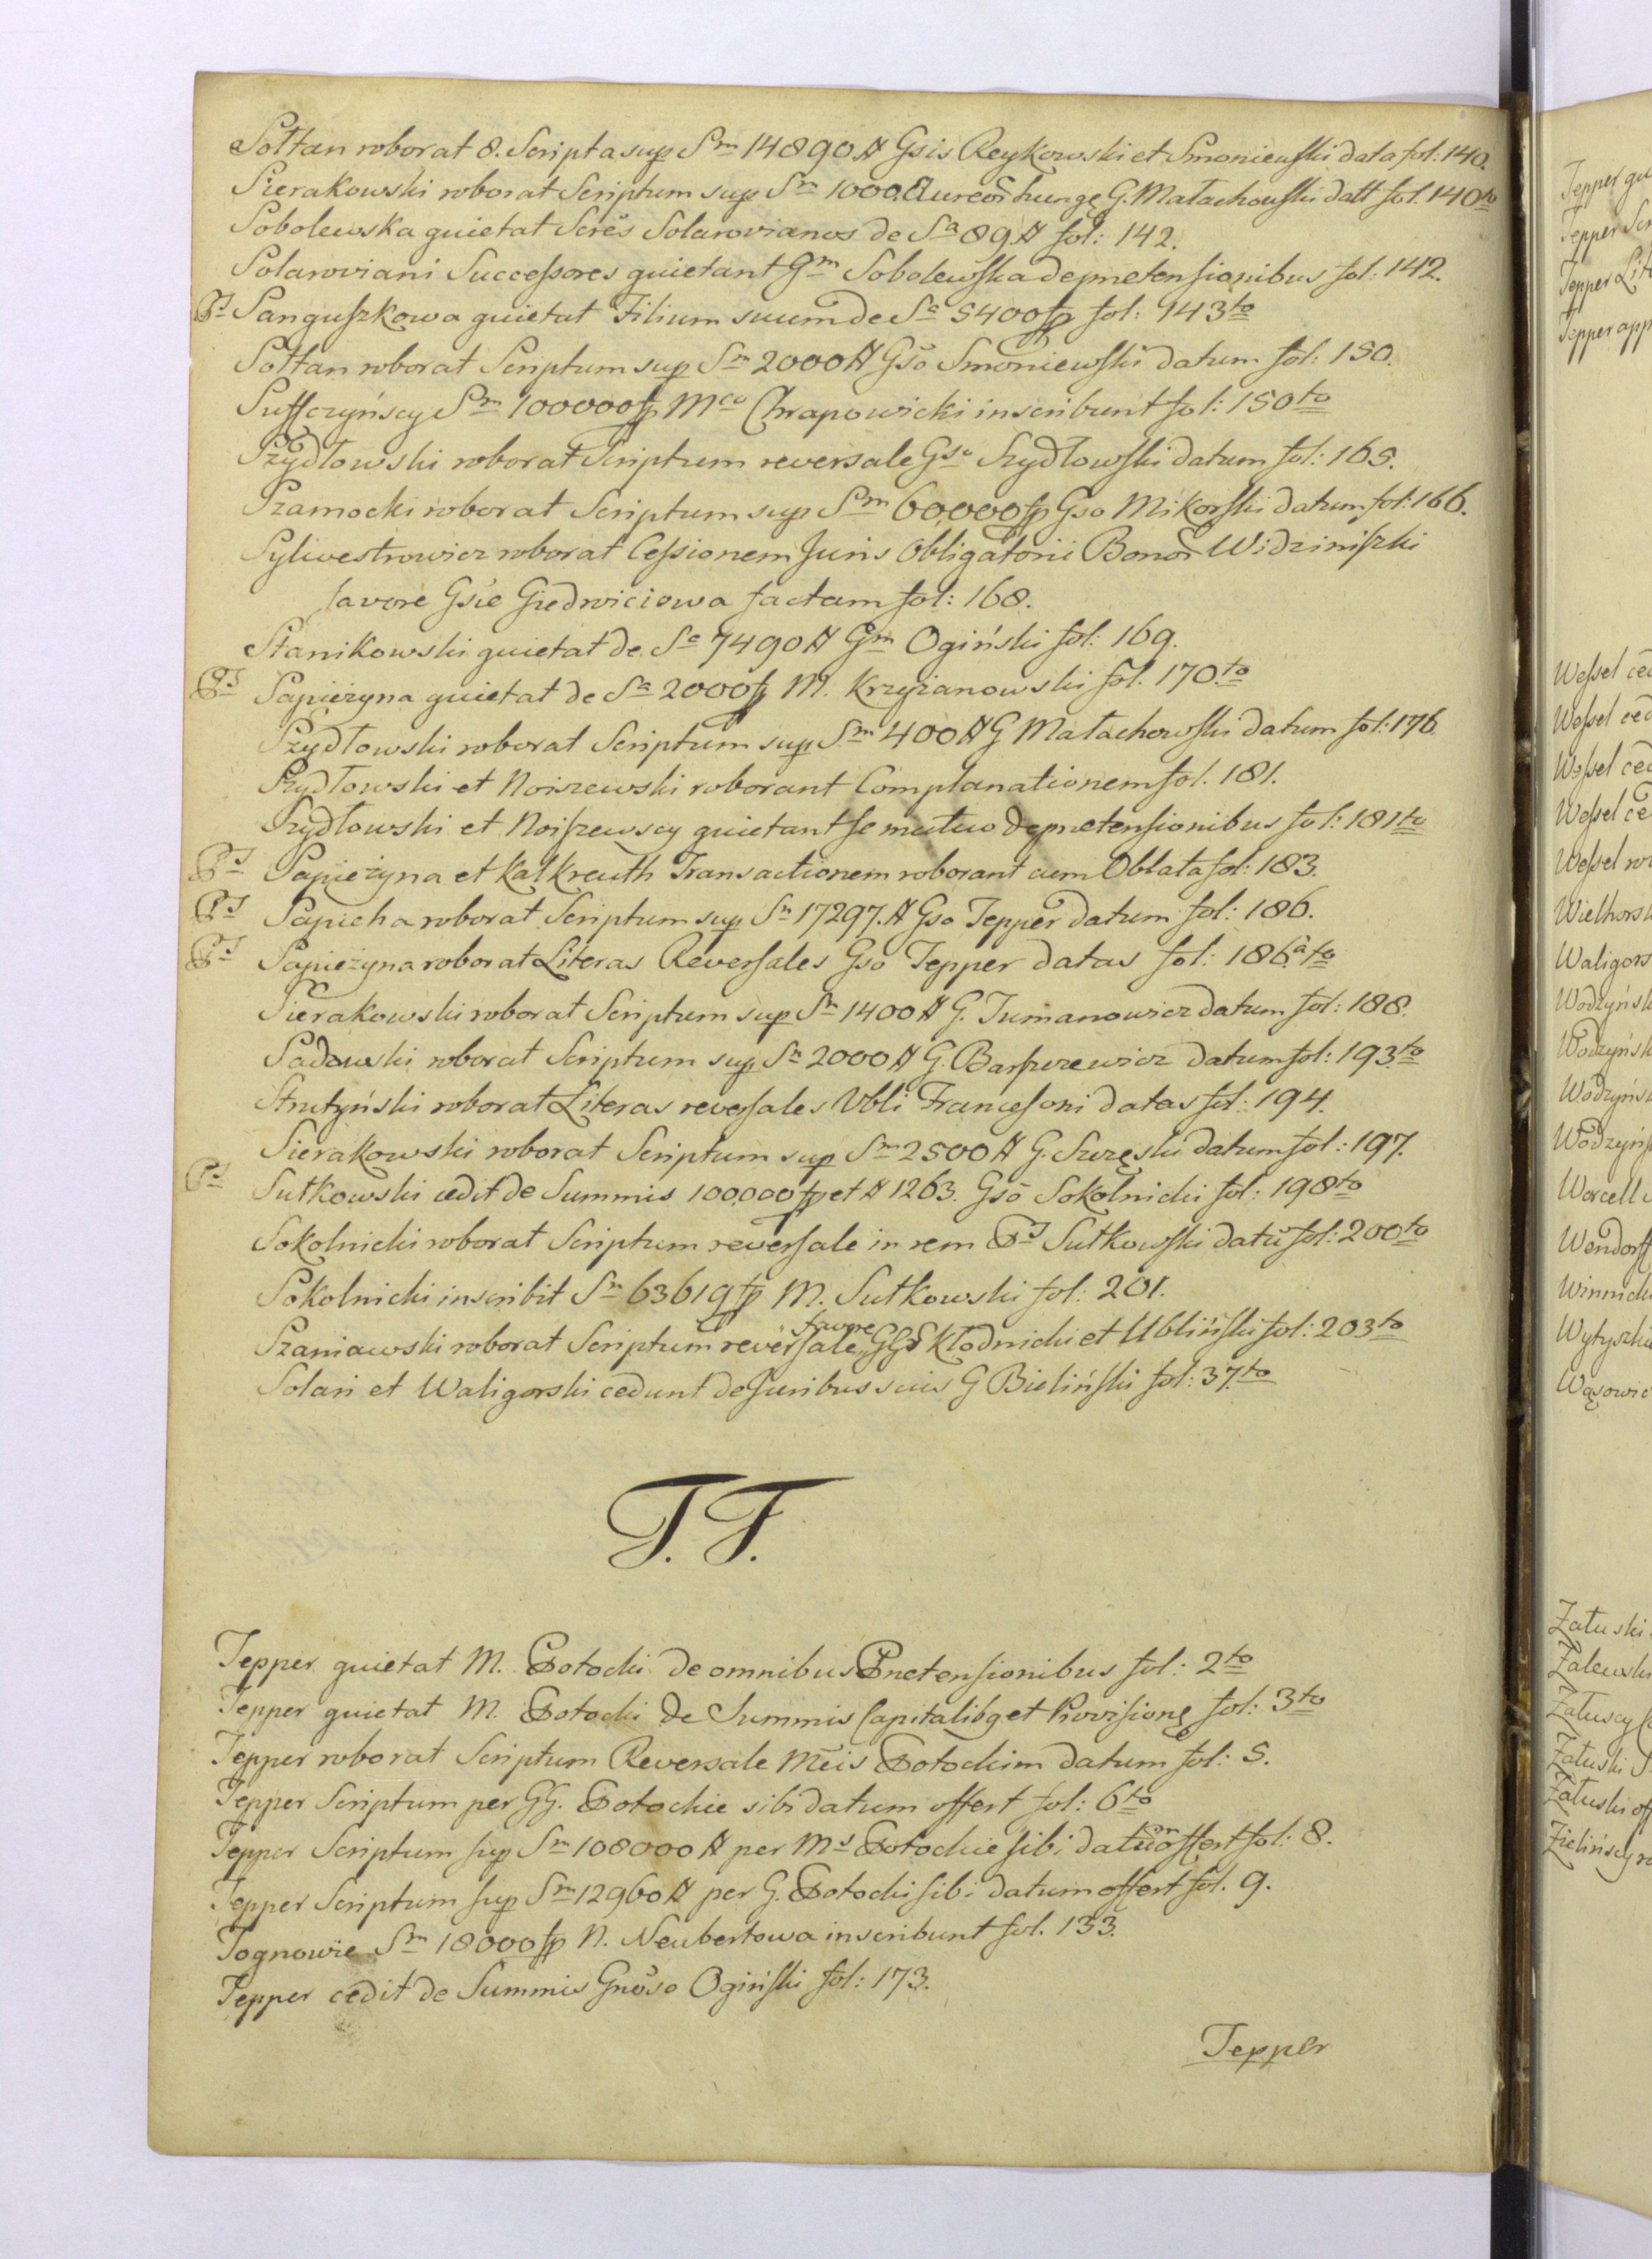 Sołtan roborat 8. Scripta sup Sm 14890 # Gsis Reykowski et Smoniewski data fol: 140.
Sierakowski roborat Scriptum sup Sm 1000. Aureor hung G. Małachowski datt fol. 140to
Sobolewska quietat Scrēs Solarovianos de Sa 89 # fol: 142.
Solaroviani Successores quietant Gm Sobolewska de pnetensionibus fol: 142.
Ps Sanguszkowa quietat Filium suum de Sa 5400 fp fol: 143to
Sołtan roborat Scriptum sup Sm 2000 # Gso Smoniewski datum fol: 150.
Suffczyńscy Sm 100000 fp Mco Chrapowicki inscribunt fol: 150to
Szydłowski roborat Scriptum reversale Gso Szydłowski datum fol: 165.
Szamocki roborat Scriptum sup Sm 60,000 fp Gso Mikorski datum fol: 166.
Sylwestrowicz roborat Cessionem Juris Obligatorii Bonor Widziniszki
favore Gsie Giedrwiciowa factam fol: 168.
Stanikowski quietat de Sa 7490 # Gm Ogiński fol: 169.
Ps Sapieżyna quietat de Sa 2000 fp M. Krzyżanowski fol. 170.to
Szydłowski roborat Scriptum sup Sm 400 # G Małachowski datum fol: 176.
Szydłowski et Noiszewski roborant Complanationem fol. 181.
Szydłowski et Noiszewscy quietant se mutuo de pnetensionibus fol: 181to
Ps Sapieżyna et Kalkreuth Transactionem roborant cum Oblata fol: 183.
Ps Sapieha roborat Scriptum sup Sm 17297. # Gso Tepper datum fol: 186.
Ps Sapieżyna roborat Literas Reversales Gso Tepper datas fol: 186.a to
Sierakowski roborat Scriptum sup Sm 1400 # G. Tumanowicz datum fol: 188.
Sadowski roborat Scriptum sup Sm 2000 # G. Barszczewicz datum fol: 193.to
Strutyński roborat Literas reversales Nbli Francesoni datas fol: 194.
Sierakowski roborat Scriptum sup Sm 2500 # G. Szczęski datum fol: 197.
Ps Sułkowski cedit de Summis 100,000 fp et # 1263. Gso Sokolnicki fol: 198to
Sokolnicki roborat Scriptum reversale in rem Ps Sułkowski datū fol: 200to
Sokolnicki inscribit Sm 63619 fp M. Sułkowski fol: 201.
Szaniawski roborat Scriptum reversale favore GGr Kłodnicki et Ubliński fol: 203to
Solari et Waligorski cedunt de Juribus suis G Bieliński fol: 37.to
T. T.
Tepper quietat M. Potocki de omnibus Pnetensionibus fol: 2to
Tepper quietat M. Potocki de Summis Capitalibq et Provisione fol: 3to
Tepper roborat Scriptum Reversale Mēis Potockim datum fol: 5.
Tepper Scriptum per GG. Potockie sibi datum offert fol: 6to
Tepper Scriptum sup Sm 108000 # per Ms Potockie sibi datum offert fol: 8.
Tepper Scriptum sup Sm 12960 # per G. Potocki sibi datum offert fol. 9.
Tognowie Sm 18000 fp N. Neubertowa inscribunt fol. 133.
Tepper cedit de Summis Gnoso Ogiński fol: 173.
Tepper
Tepper
Tepper
Tepper
Wessel
Wessel
Wessel
Wessel
Wessel
Waligors
Wodzyńsk
Worcell
Wendorff
Winnick
Załuski
Zalewski
Załuscy
Załuski
Załuski
Zielińscy